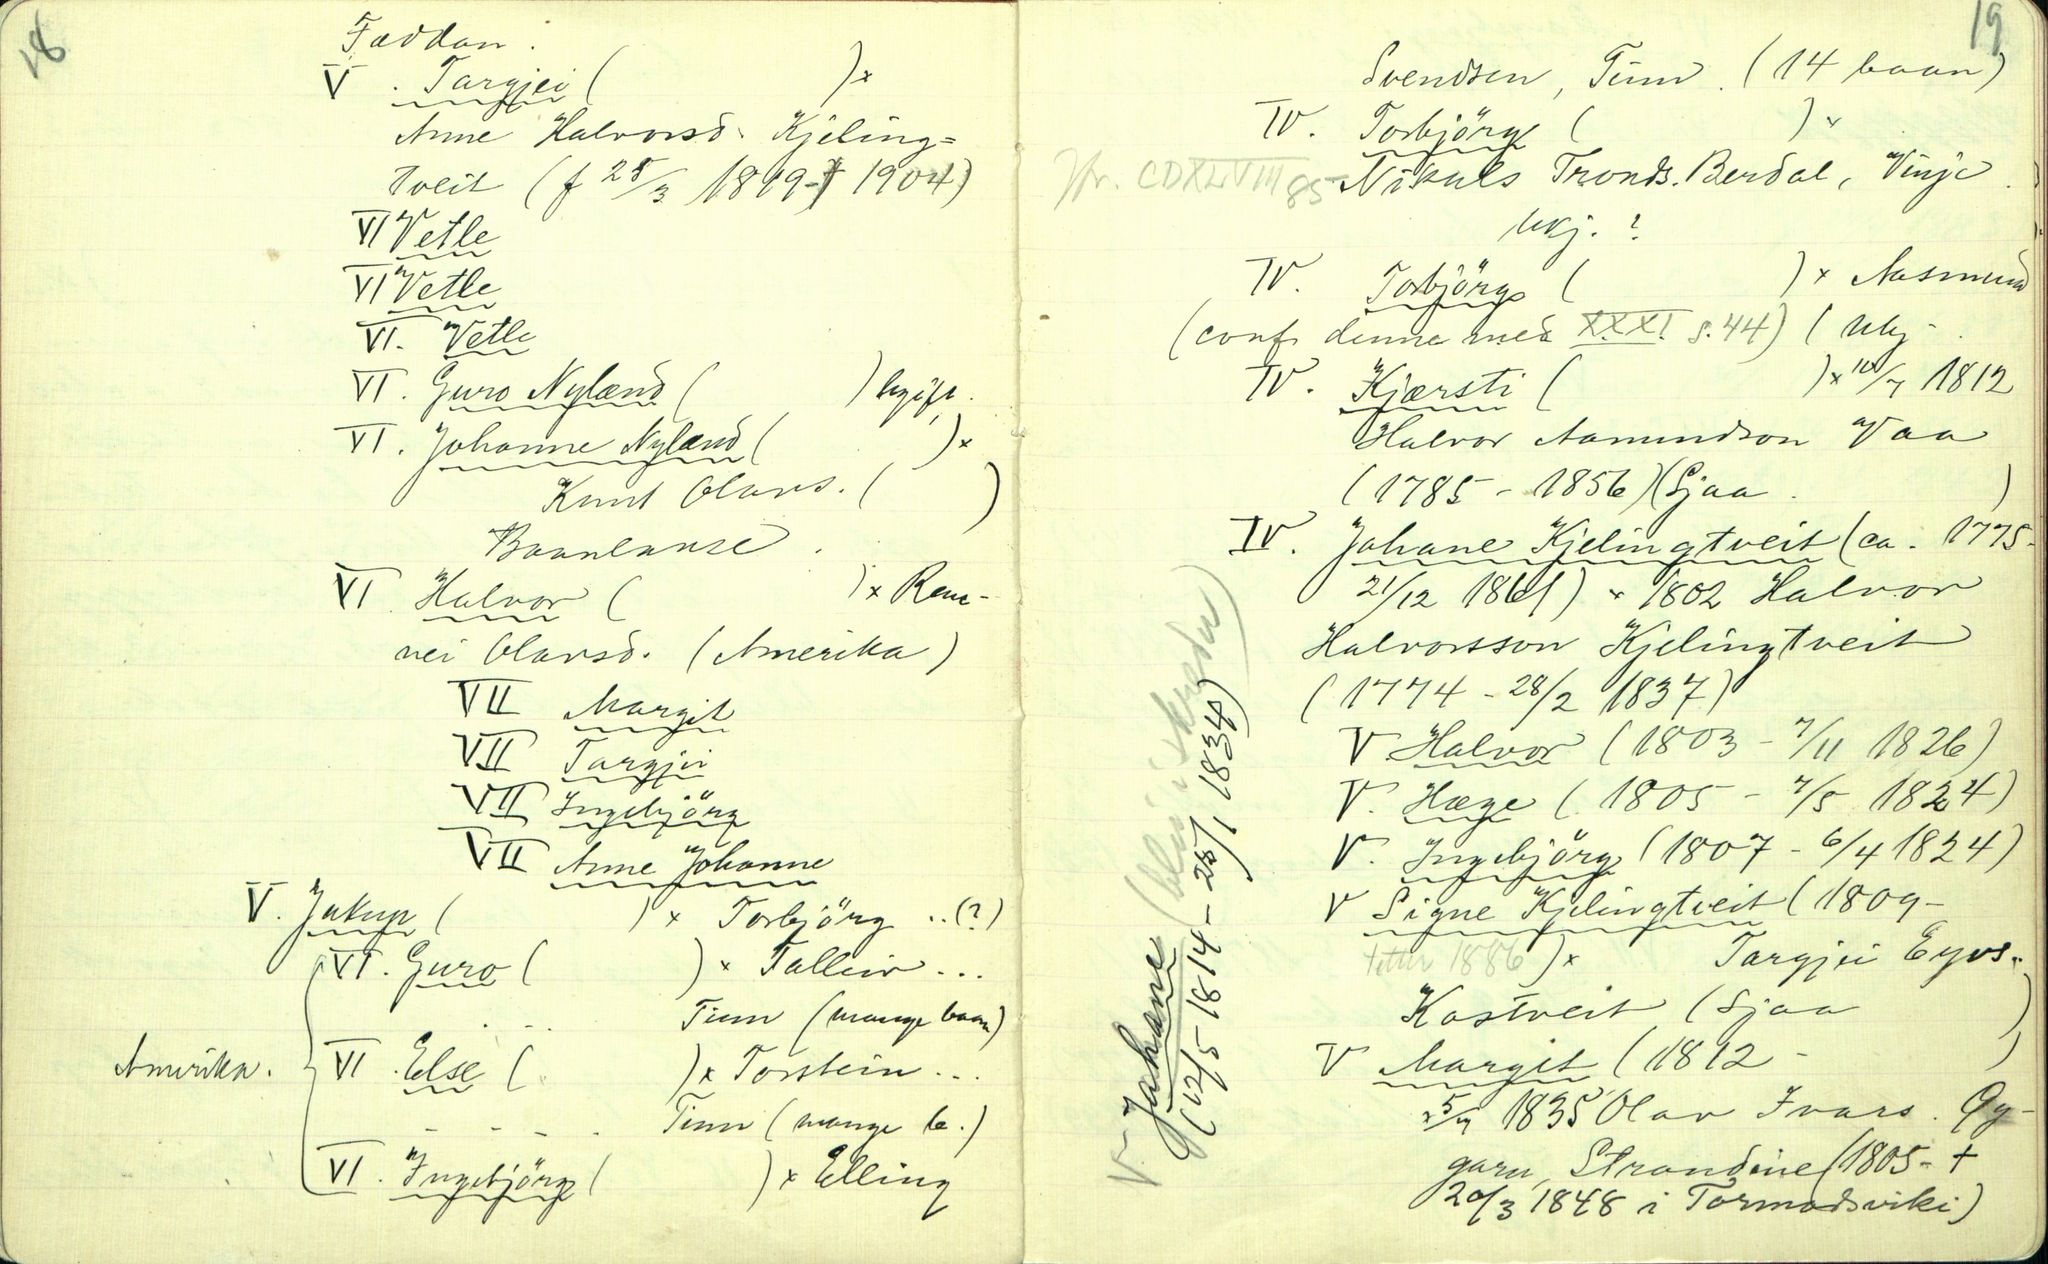 18
Faddan.
V. Targjei ( ) ×
Anne Halvorsd. Kjeling=
tveit (f 28/3 1819-† 1904)
VI Vetle
VI Vetle
VI. Vetle
VI. Guro Nyland ( ) ugift.
VI. Johanne Nyland ( ) ×
Knut Olavs. ( )
Baanlause.
VI Halvor ( ) × Ran-
nei Olavsd. (Amerika)
VII Margit
VII Targjei
VII Ingebjörg
VII Anne Johanne
V. Jakup ( ) × Torbjörg ..(?)
VI. Guro ( ) × Talleiv ...
Tinn (mange baan)
Amerika.
VI. Else ( ) × Torstein ...
Tinn (mange b.)
VI. Ingebjörg ( ) × Elling
19
Svendsen, Tinn. (14 baan)
IV. Torbjörg ( ) ×
Jfr. CDXLVIII 85 Nikuls Tronds. Berdal, Vinje.
ukj. ?
IV. Torbjörg ( ) × Aasmund
(conf. denne med XXXI s. 44) (ukj.
IV. Kjærsti ( ) × 10/7 1812
Halvor Aamundson Vaa
(1785 - 1856) (Sjaa. )
IV. Johane Kjelingtveit (ca. 1775-
21/12 1861) × 1802 Halvor
Halvorsson Kjelingtveit
(1774 - 28/2 1837)
V Halvor (1803 - 7/11 1826)
V. Hæge (1805 - 7/5 1824)
V. Ingebjörg (1807 - 6/4 1824)
V Signe Kjelingtveit (1809-
etter 1886) × Targjei Eyvs.
Kostveit (Sjaa )
V Margit (1812 - )
× 5/7 1835 Olav Ivars. Gy-
garu, Strandine (1805 - †
20/3 1848 i Tormodsviki)
V. Johane (blei i skredu)
(12/5 1814 - 25/1 1834)